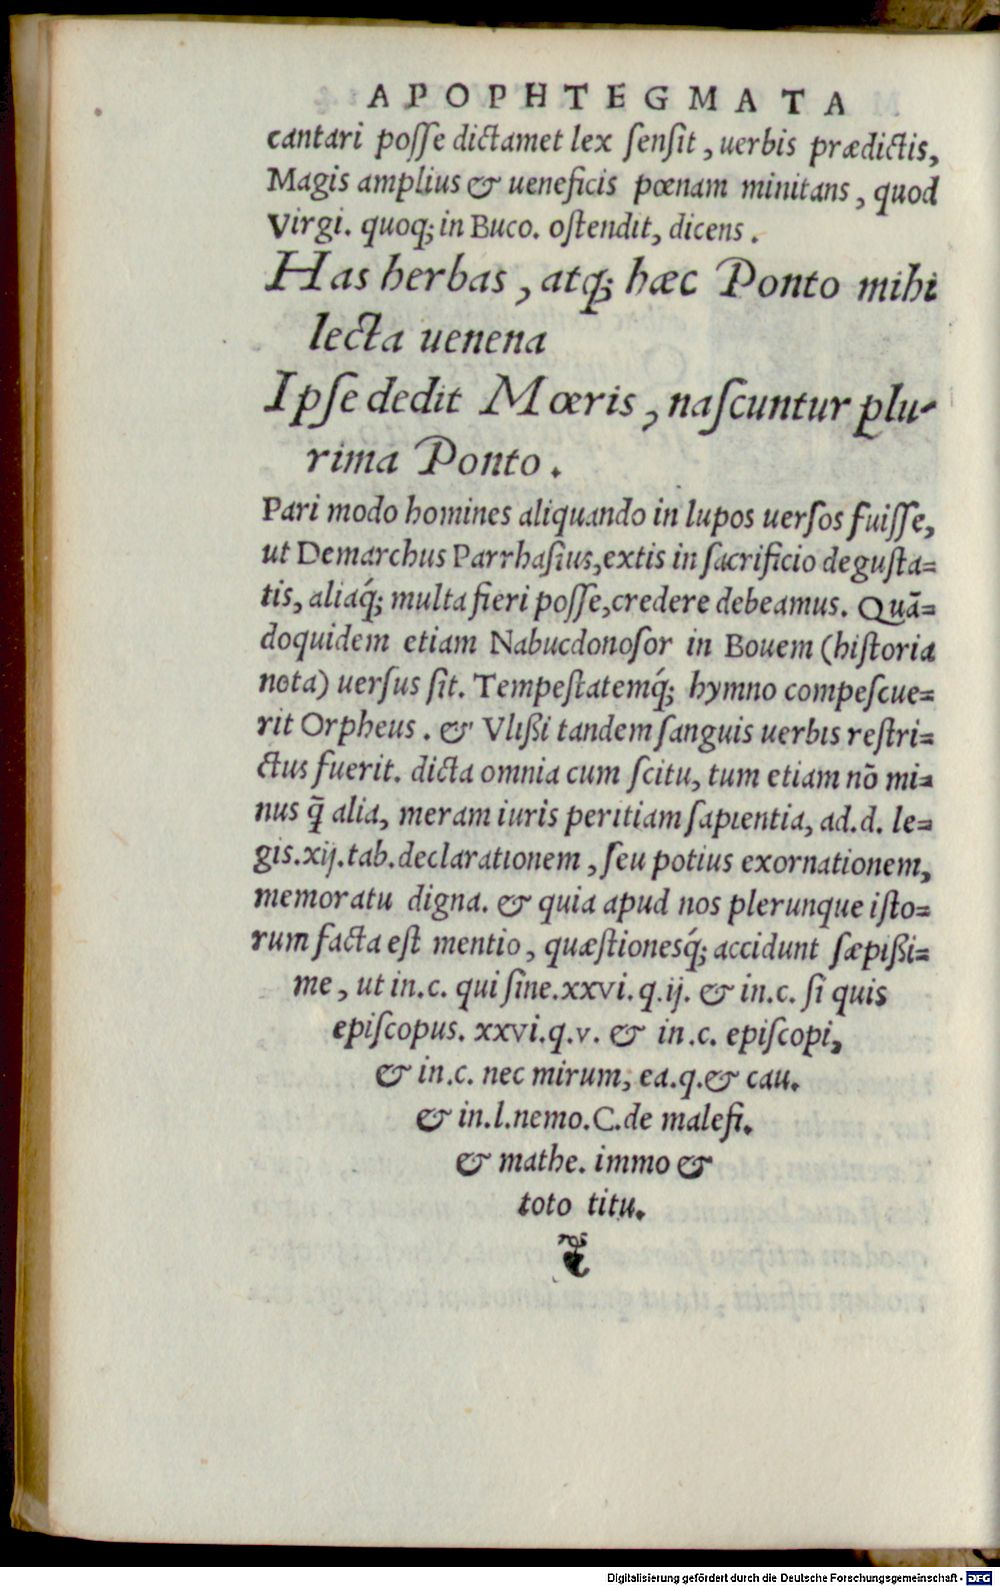 APOPHTEGMATA
cantari posse dictamet lex sensit, uerbis prædictis,
Magis amplius & ueneficis pœnam minitans, quod
Virgi. quoq; in Buco. ostendit, dicens.
Has herbas, atq; hæc Ponto mihi
lecta uenena
Ipse dedit Mœris, nascuntur plu-
rima Ponto.
Pari modo homines aliquando in lupos uersos fuisse,
ut Demarchus Parrhasius, extis in sacrificio degusta=
tis, aliaq́; multa fieri posse, credere debeamus. Quā=
doquidem etiam Nabucdonosor in Bouem (historia
nota) uersus sit. Tempestatemq́; hymno compescue=
rit Orpheus. & Vlißi tandem sanguis uerbis restri=
ctus fuerit. dicta omnia cum scitu, tum etiam nō mi=
nus q̄ alia, meram iuris peritiam sapientia, ad.d. le=
gis.xij.tab.declarationem, seu potius exornationem,
memoratu digna. & quia apud nos plerunque isto=
rum facta est mentio, quæstionesq́; accidunt sæpißi=
me, ut in.c. qui sine.xxvi.q.ij. & in.c. si quis
episcopus. xxvi.q.v. & in.c. episcopi,
& in.c. nec mirum, ea.q.& cau.
& in.l.nemo.C.de malefi.
& mathe. immo &
toto titu.
Digitalisierung gefördert durch die Deutsche Forschungsgemeinschaft - DFG